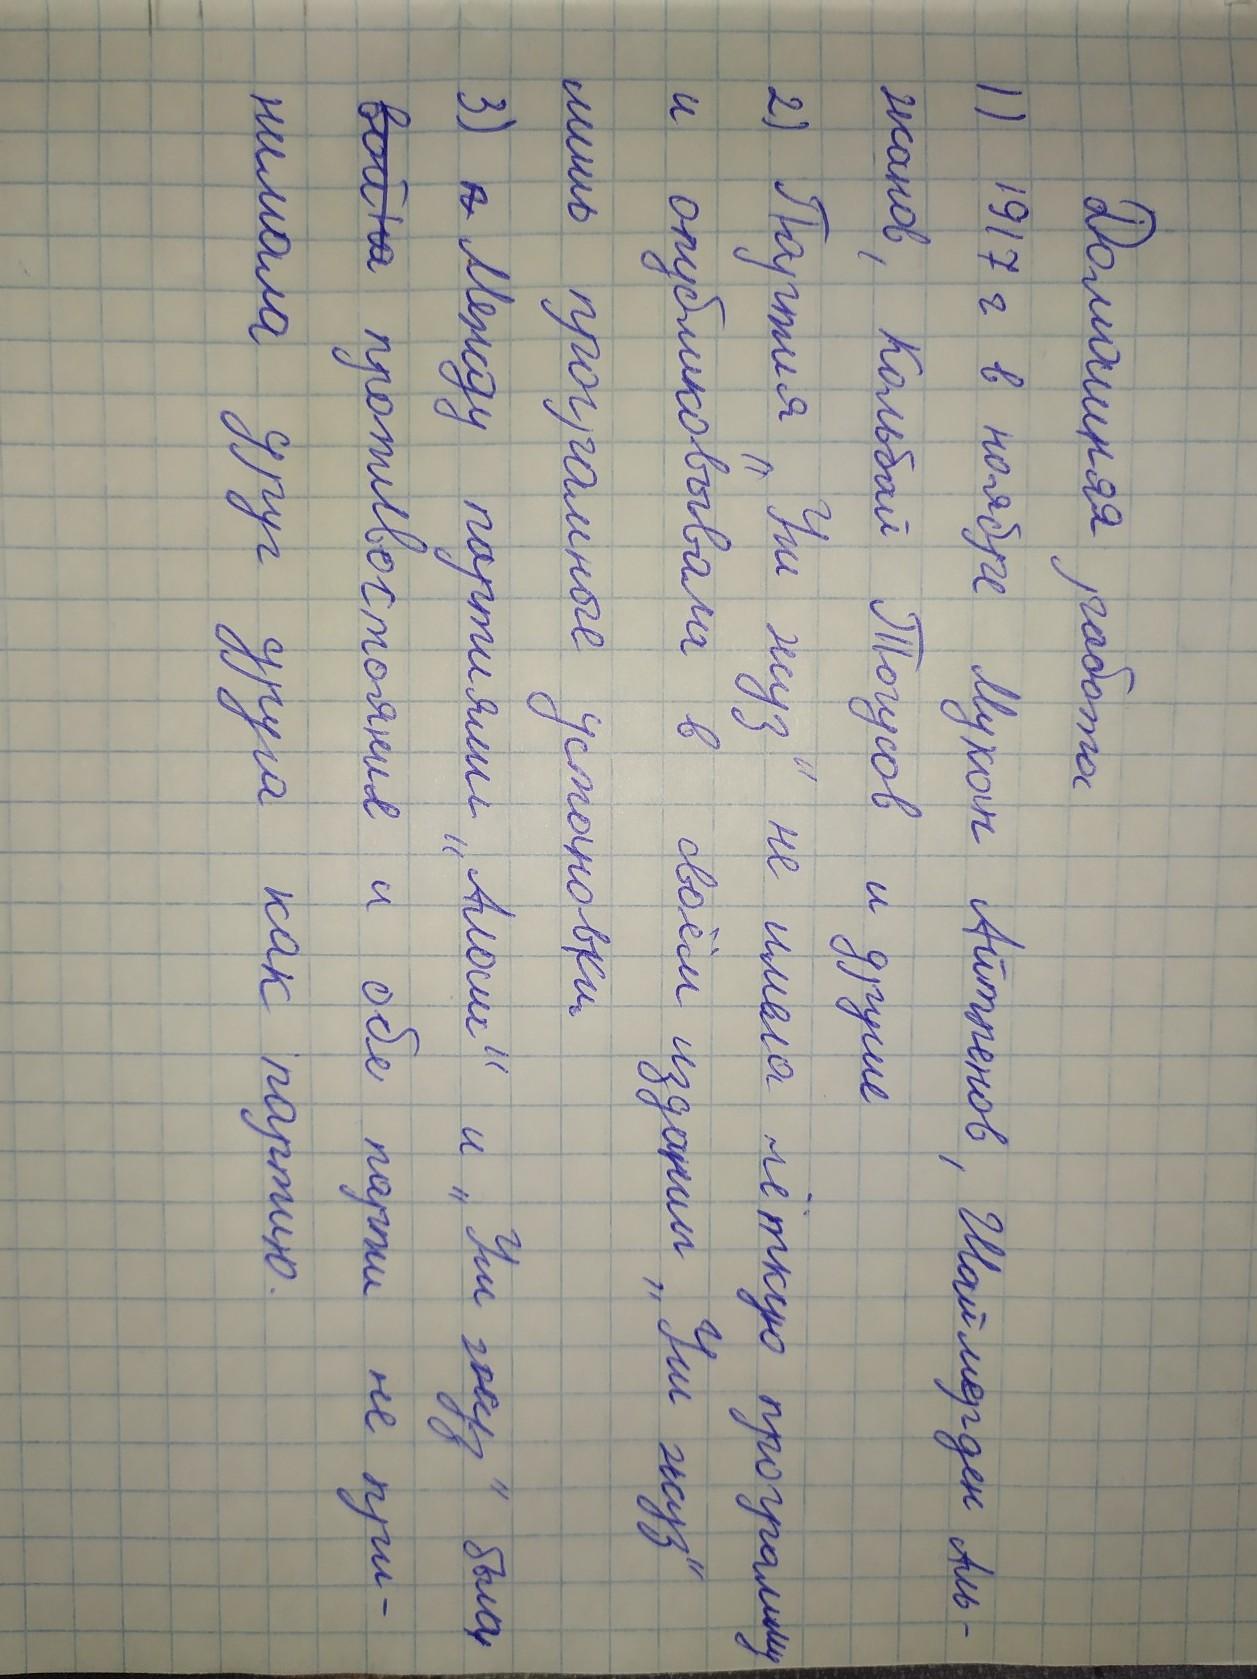 Домашняя работа
1) 1917 г в ноябре Мукан Айтпенов, Шаймерден Аль-
жанов, Кольбай Тогусов и другие
2) Партия „Уш жуз" не имела чёткую программу
и опубликовывала в своём издании „Уш жуз"
лишь программные установки.
3) Между партиями „Алаш" и „Уш жуз" была
война противостояние и обе парти не при-
нимала друг друга как партию.